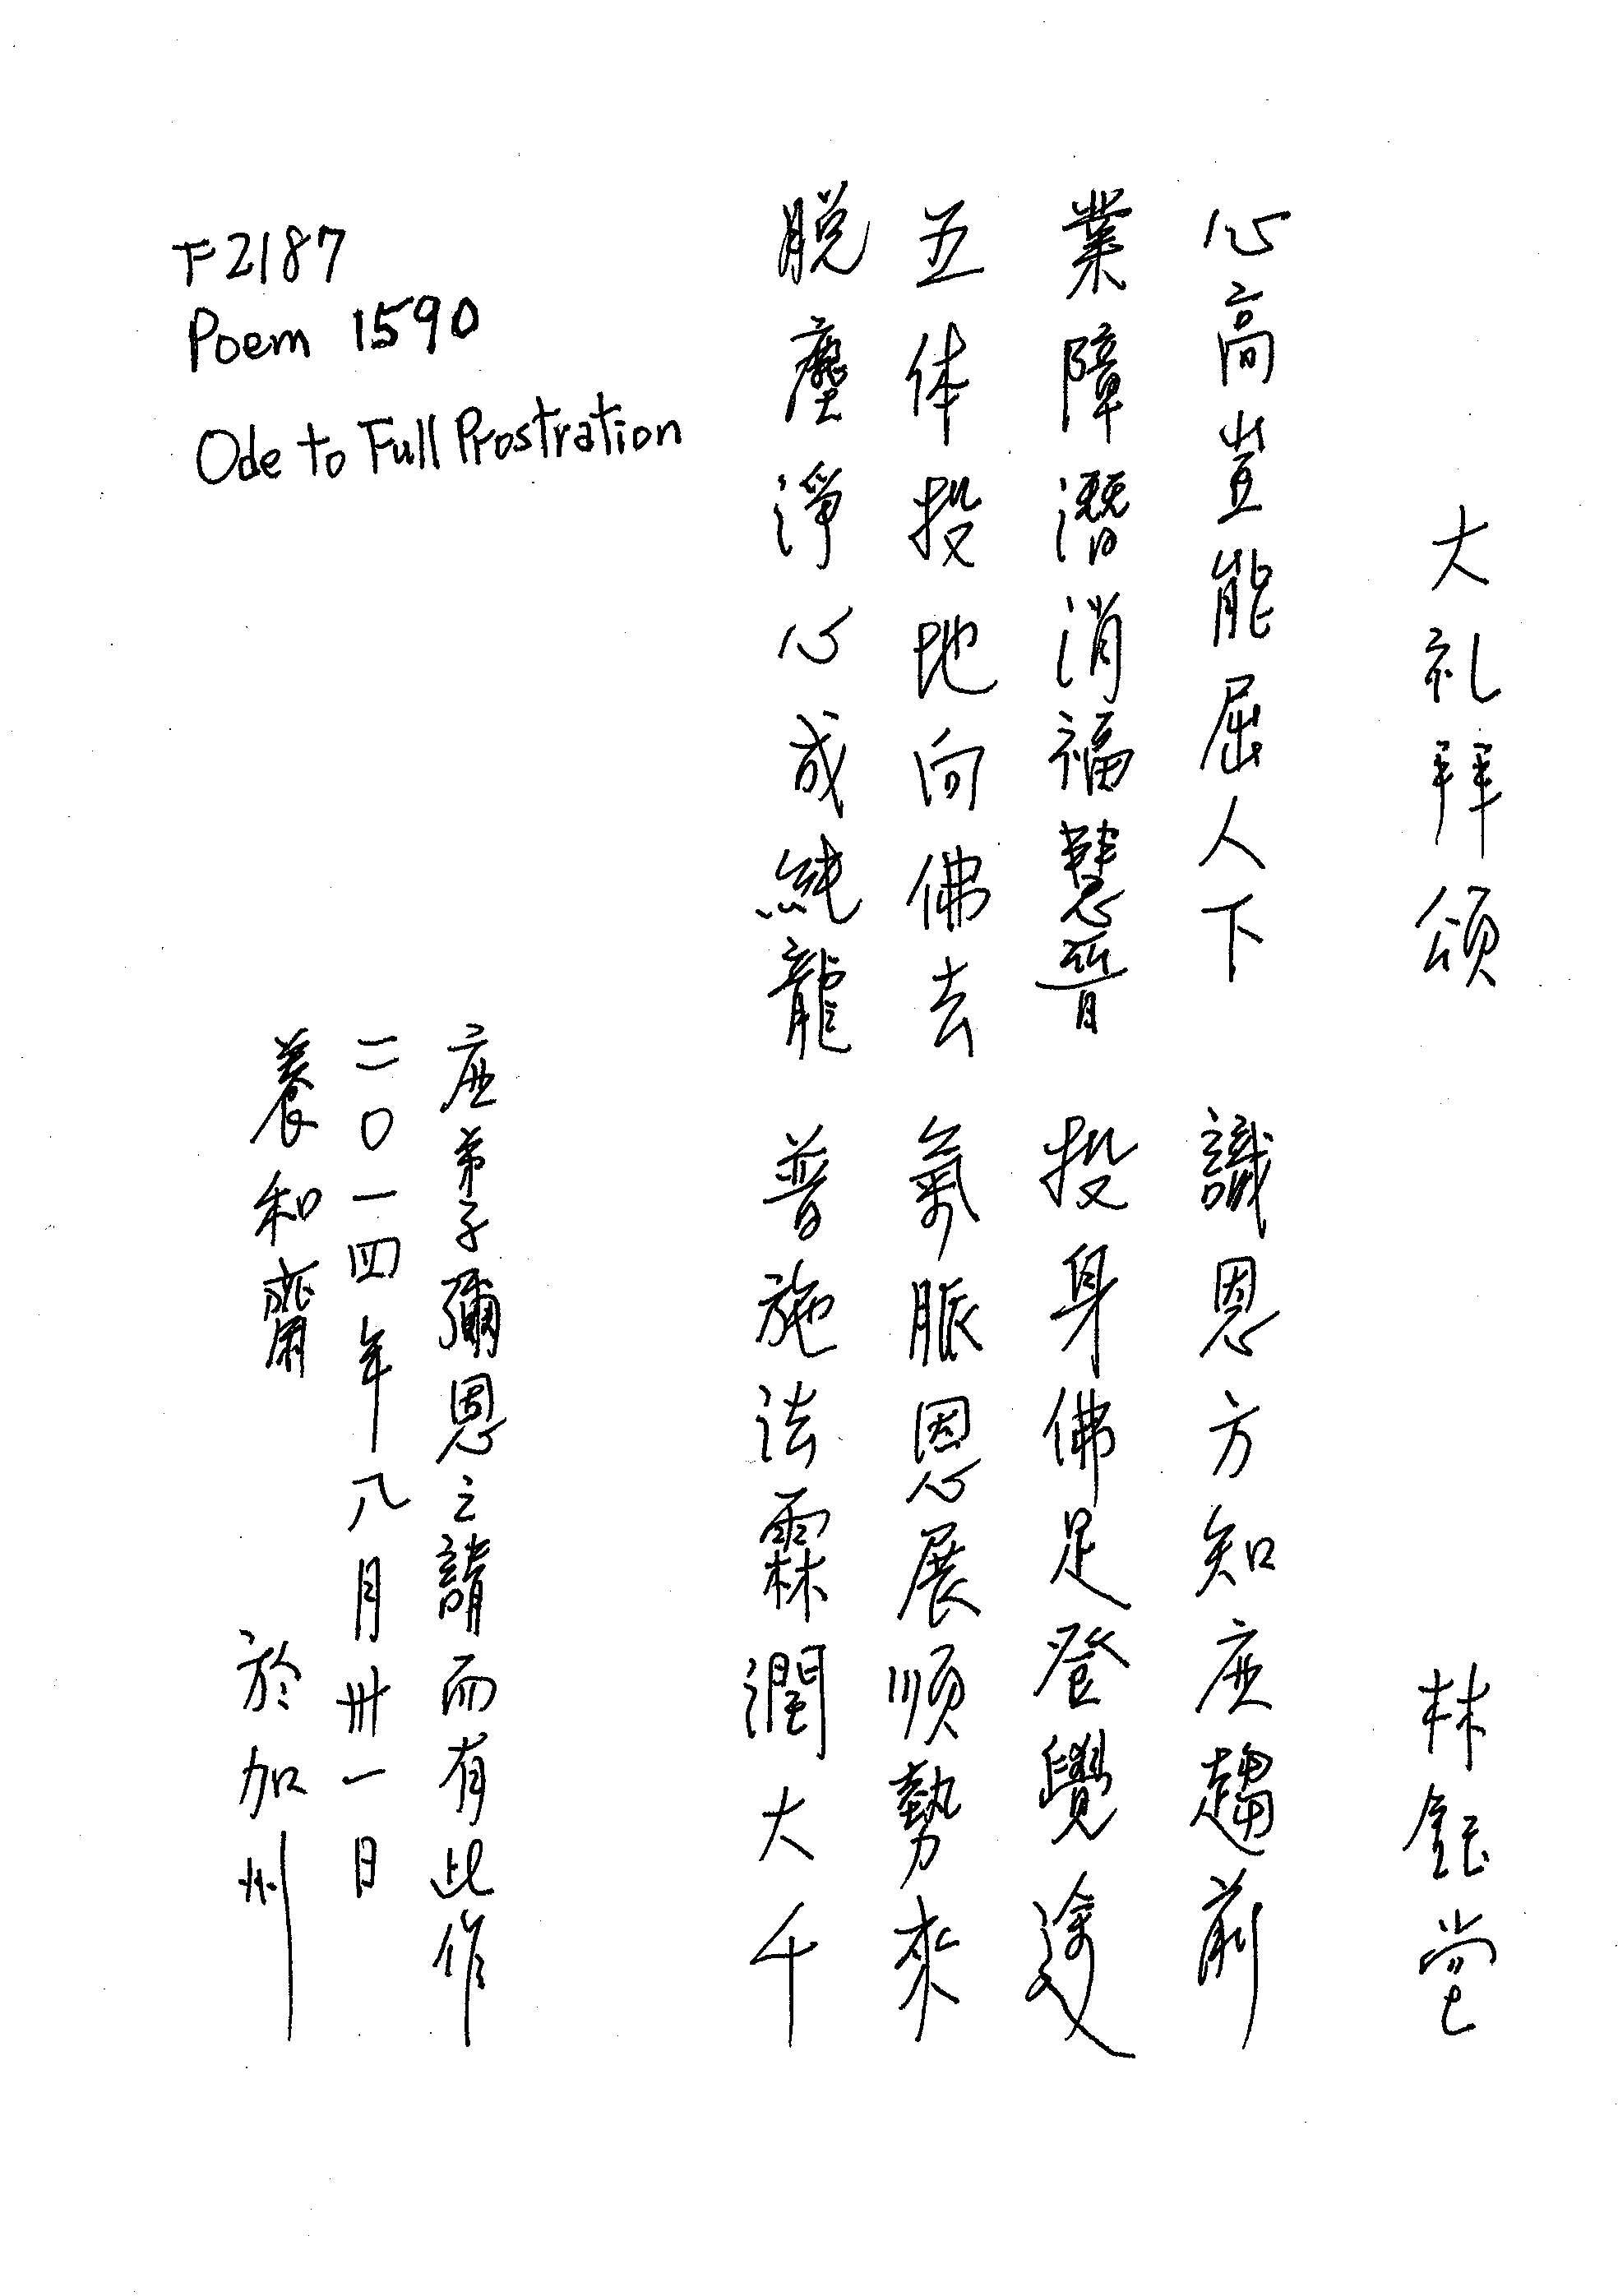 大礼拜頌
林鈺堂
心高豈能屈人下 識恩方知应趨前
業障潛消福慧晉 投身佛足登覺途
五体投地向佛去 氣脈恩展順勢來
脫塵淨心成純龍 普施法霖潤大千
应弟子彌恩之請而有此作
二〇一四年八月卅一日
養和齋 於加州
F2187
Poem 1590
Ode to Full Prostration